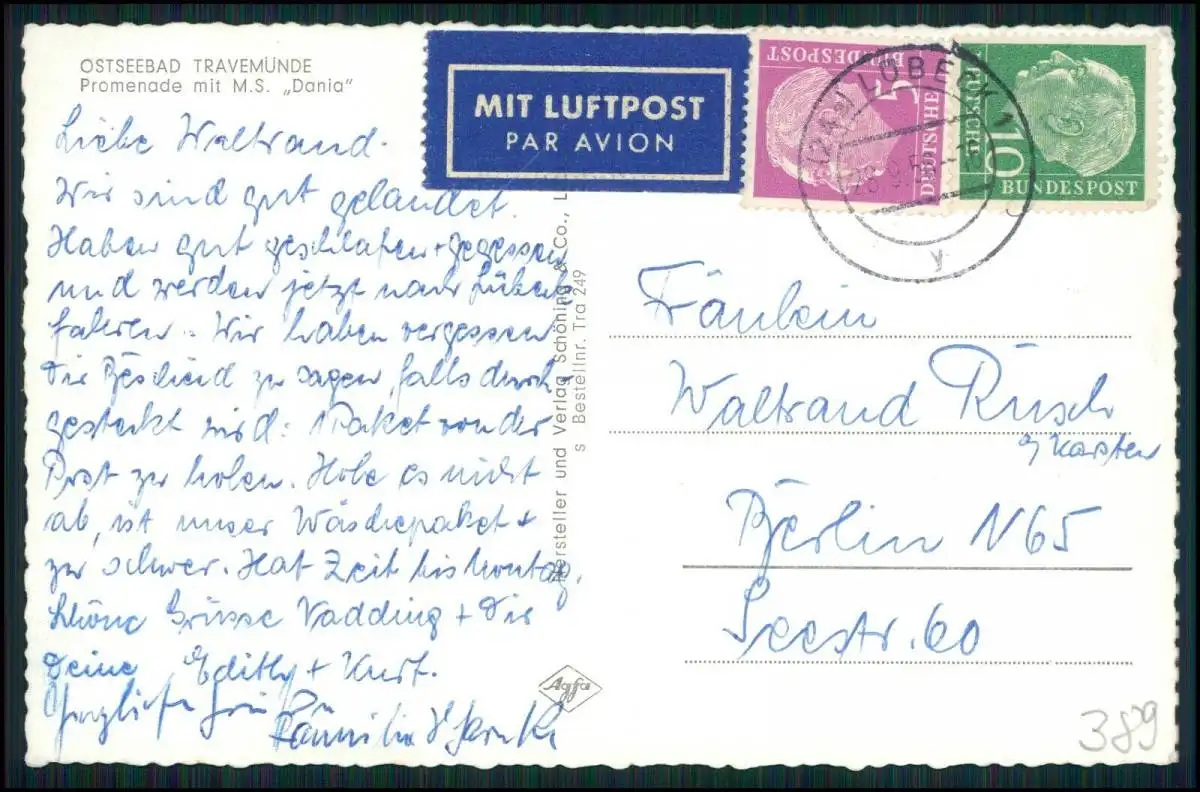 OSTSEEBAD TRAVEMÜNDE
Promenade mit M.S. „Dania"
Liebe Waltraud.
Wir sind gut gelandet.
Haben gut geschlafen + gegessen
und werden jetzt nach Lübeck
fahren. Wir haben vergessen
Dir Bescheid zu sagen, falls durch
gesteckt wird: 1 Paket von der
Post zu holen. Hole es nicht
ab, ist unser Wäschepaket +
zu schwer. Hat Zeit bis Montag.
Schöne Grüsse Vadding + Dir
Deine Edith + Kurt.
Herzliche Grüße
Familie
MIT LUFTPOST
PAR AVION
DEUTSCHE BUNDESPOST
5
DEUTSCHE BUNDESPOST
10
LÜBECK 1
y
Hersteller und Verlag Schöning & Co., L
s Bestellnr. Tra 249
Agfa
Fräulein
Waltraud Rusch
b/ Karsten
Berlin N 65
Seestr. 60
389